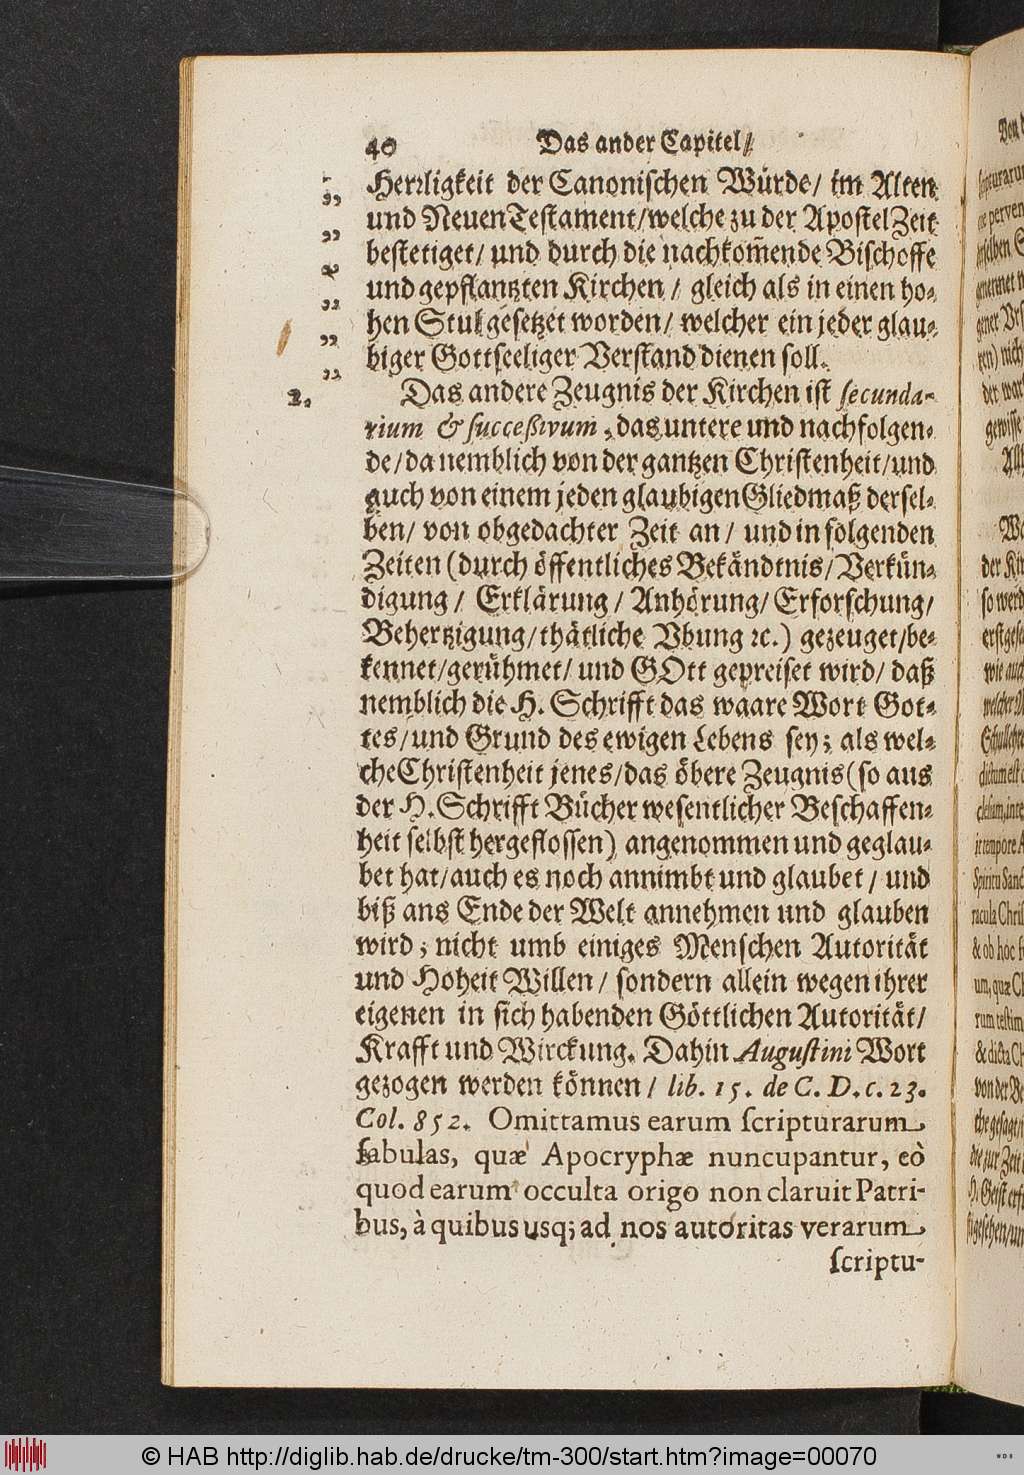 40 Das ander Capitel/
Herꝛligkeit der Canonischen Würde/ im Alten
und Neuen Testament/welche zu der Apostel Zeit
bestetiget/ und durch die nachkom̃ende Bischoffe
und gepflantzten Kirchen / gleich als in einen ho-
hen Stul gesetzet worden/ welcher ein jeder glau-
biger Gottseeliger Verstand dienen soll.
2. Das andere Zeugnis der Kirchen ist secunda-
rium & successivum, das untere und nachfolgen-
de/da nemblich von der gantzen Christenheit/und
auch von einem jeden glaubigen Gliedmaß dersel-
ben/ von obgedachter Zeit an / und in folgenden
Zeiten (durch öffentliches Bekändtnis/ Verkün-
digung / Erklärung / Anhörung/ Erforschung/
Behertzigung/thätliche Vbung ꝛc.) gezeuget/be-
kennet/gerühmet/ und GOtt gepreiset wird/ daß
nemblich die H. Schrifft das waare Wort Got-
tes/und Grund des ewigen Lebens sey; als wel-
che Christenheit jenes/das öbere Zeugnis (so aus
der H. Schrifft Bücher wesentlicher Beschaffen-
heit selbst hergeflossen) angenommen und geglau-
bet hat/auch es noch annimbt und glaubet / und
biß ans Ende der Welt annehmen und glauben
wird; nicht umb einiges Menschen Autorität
und Hoheit Willen / sondern allein wegen ihrer
eigenen in sich habenden Göttlichen Autorität/
Krafft und Wirckung. Dahin Augustini Wort
gezogen werden können / lib. 15. de C. D. c. 23.
Col. 852. Omittamus earum scripturarum
fabulas, quæ Apocryphæ nuncupantur, eò
quod earum occulta origo non claruit Patri-
bus, à quibus usq; ad nos autoritas verarum
scriptu-
© HAB http://diglib.hab.de/drucke/tm-300/start.htm?image=00070